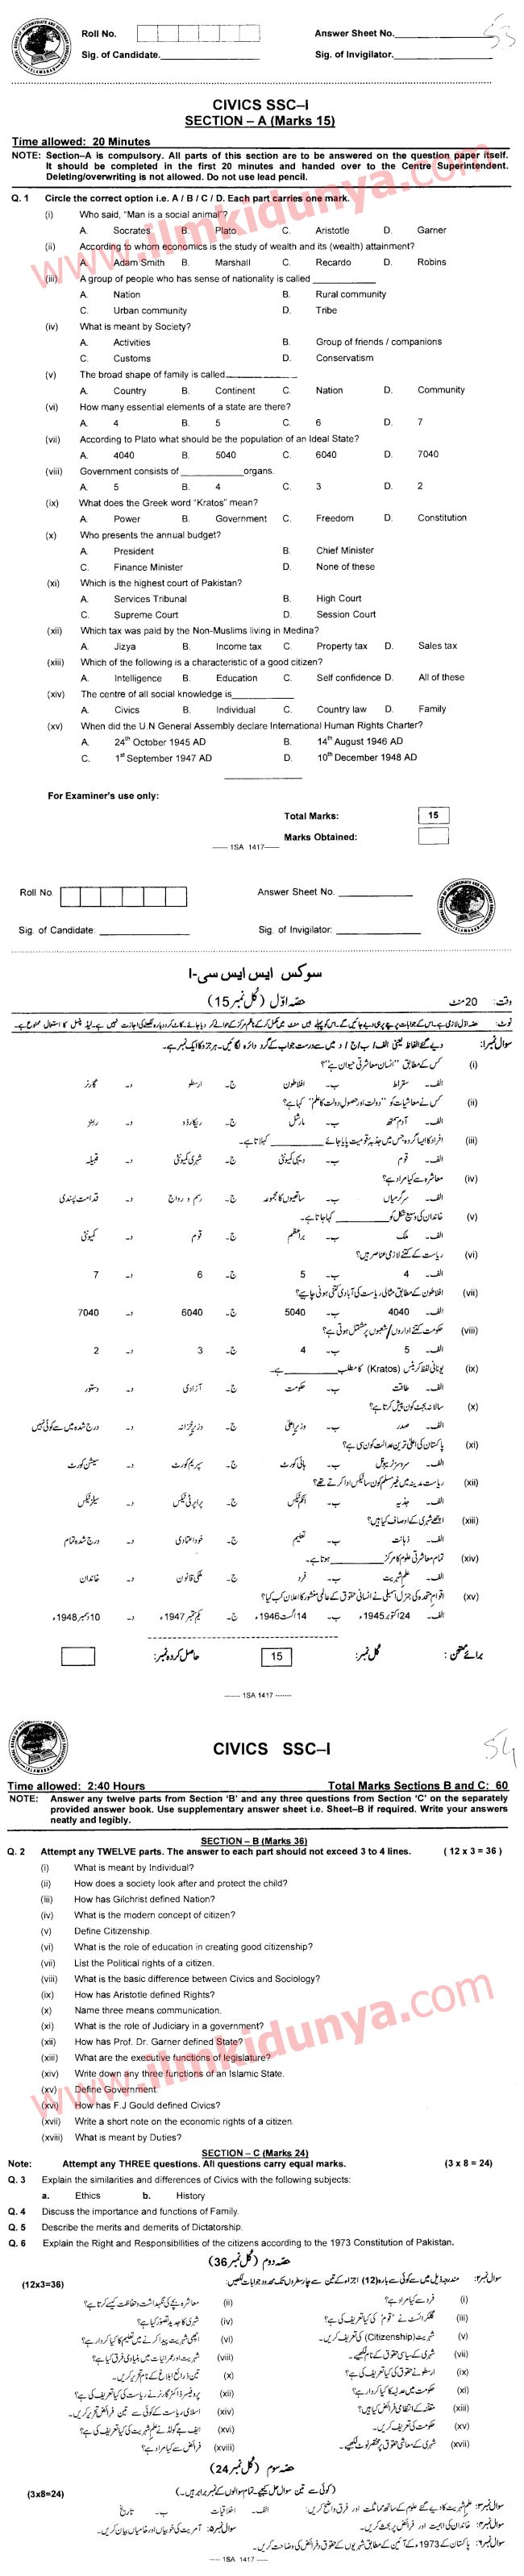 Roll No.
Answer Sheet No.
Sig. of Candidate.
Sig. of Invigilator.
CIVICS SSC–I
SECTION – A (Marks 15)
Time allowed: 20 Minutes
NOTE: Section–A is compulsory. All parts of this section are to be answered on the question paper itself.
It should be completed in the first 20 minutes and handed over to the Centre Superintendent.
Deleting/overwriting is not allowed. Do not use lead pencil.
Q. 1 Circle the correct option i.e. A / B / C / D. Each part carries one mark.
(i) Who said, "Man is a social animal"?
A. Socrates B. Plato C. Aristotle D. Garner
(ii) According to whom economics is the study of wealth and its (wealth) attainment?
A. Adam Smith B. Marshall C. Recardo D. Robins
(iii) A group of people who has sense of nationality is called ____________
A. Nation B. Rural community
C. Urban community D. Tribe
(iv) What is meant by Society?
A. Activities B. Group of friends / companions
C. Customs D. Conservatism
(v) The broad shape of family is called ____________
A. Country B. Continent C. Nation D. Community
(vi) How many essential elements of a state are there?
A. 4 B. 5 C. 6 D. 7
(vii) According to Plato what should be the population of an Ideal State?
A. 4040 B. 5040 C. 6040 D. 7040
(viii) Government consists of ____________ organs.
A. 5 B. 4 C. 3 D. 2
(ix) What does the Greek word "Kratos" mean?
A. Power B. Government C. Freedom D. Constitution
(x) Who presents the annual budget?
A. President B. Chief Minister
C. Finance Minister D. None of these
(xi) Which is the highest court of Pakistan?
A. Services Tribunal B. High Court
C. Supreme Court D. Session Court
(xii) Which tax was paid by the Non-Muslims living in Medina?
A. Jizya B. Income tax C. Property tax D. Sales tax
(xiii) Which of the following is a characteristic of a good citizen?
A. Intelligence B. Education C. Self confidence D. All of these
(xiv) The centre of all social knowledge is ____________
A. Civics B. Individual C. Country law D. Family
(xv) When did the U.N General Assembly declare International Human Rights Charter?
A. 24th October 1945 AD B. 14th August 1946 AD
C. 1st September 1947 AD D. 10th December 1948 AD
For Examiner's use only:
Total Marks: 15
Marks Obtained:
—— 1SA 1417 ——
Roll No.
Answer Sheet No.
Sig. of Candidate:
Sig. of Invigilator:
سوکس ایس ایس سی-I
حصہ اوّل (کُل نمبر 15)
وقت: 20 منٹ
سوال نمبر ۱: دیے گئے الفاظ یعنی الف/ب/ج/د میں سے درست جواب کے گرد دائرہ لگائیں۔ ہر جزو کا ایک نمبر ہے۔
(i) کس کے مطابق "انسان معاشرتی حیوان ہے"؟
الف۔ سقراط ب۔ افلاطون ج۔ ارسطو د۔ گارنر
(ii) کس نے معاشیات کو "دولت اور حصولِ دولت کا علم" کہا ہے؟
الف۔ آدم سمتھ ب۔ مارشل ج۔ ریکارڈو د۔ رابنز
(iii) افراد کا ایسا گروہ جس میں جذبہ قومیت پایا جائے ____________ کہلاتا ہے۔
الف۔ قوم ب۔ دیہی کمیونٹی ج۔ شہری کمیونٹی د۔ قبیلہ
(iv) معاشرہ سے کیا مراد ہے؟
الف۔ سرگرمیاں ب۔ ساتھیوں کا مجموعہ ج۔ رسم و رواج د۔ قدامت پسندی
(v) خاندان کی وسیع شکل کو ____________ کہا جاتا ہے۔
الف۔ ملک ب۔ براعظم ج۔ قوم د۔ کمیونٹی
(vi) ریاست کے کتنے لازمی عناصر ہیں؟
الف۔ 4 ب۔ 5 ج۔ 6 د۔ 7
(vii) افلاطون کے مطابق مثالی ریاست کی آبادی کتنی ہونی چاہیے؟
الف۔ 4040 ب۔ 5040 ج۔ 6040 د۔ 7040
(viii) حکومت کتنے اداروں/شعبوں پر مشتمل ہوتی ہے؟
الف۔ 5 ب۔ 4 ج۔ 3 د۔ 2
(ix) یونانی لفظ کریٹس (Kratos) کا مطلب ____________ ہے۔
الف۔ طاقت ب۔ حکومت ج۔ آزادی د۔ دستور
(x) سالانہ بجٹ کون پیش کرتا ہے؟
الف۔ صدر ب۔ وزیرِاعلیٰ ج۔ وزیرِخزانہ د۔ درج شدہ میں سے کوئی نہیں
(xi) پاکستان کی اعلیٰ ترین عدالت کون سی ہے؟
الف۔ سروسز ٹریبیونل ب۔ ہائی کورٹ ج۔ سپریم کورٹ د۔ سیشن کورٹ
(xii) ریاست مدینہ میں غیر مسلم کون سا ٹیکس ادا کرتے تھے؟
الف۔ جذیہ ب۔ انکم ٹیکس ج۔ پراپرٹی ٹیکس د۔ سیلز ٹیکس
(xiii) اچھے شہری کے اوصاف کیا ہیں؟
الف۔ ذہانت ب۔ تعلیم ج۔ خود اعتمادی د۔ درج شدہ تمام
(xiv) تمام معاشرتی علوم کا مرکز ____________ ہوتا ہے۔
الف۔ علم شہریت ب۔ فرد ج۔ ملکی قانون د۔ خاندان
(xv) اقوام متحدہ کی جنرل اسمبلی نے انسانی حقوق کے عالمی منشور کا اعلان کب کیا؟
الف۔ 24 اکتوبر 1945ء ب۔ 14 اگست 1946ء ج۔ یکم ستمبر 1947ء د۔ 10 دسمبر 1948ء
برائے ممتحن: کُل نمبر: 15 حاصل کردہ نمبر:
—— 1SA 1417 ——
CIVICS SSC–I
Time allowed: 2:40 Hours
Total Marks Sections B and C: 60
NOTE: Answer any twelve parts from Section 'B' and any three questions from Section 'C' on the separately
provided answer book. Use supplementary answer sheet i.e. Sheet–B if required. Write your answers
neatly and legibly.
SECTION – B (Marks 36)
Q. 2 Attempt any TWELVE parts. The answer to each part should not exceed 3 to 4 lines. (12 x 3 = 36)
(i) What is meant by Individual?
(ii) How does a society look after and protect the child?
(iii) How has Gilchrist defined Nation?
(iv) What is the modern concept of citizen?
(v) Define Citizenship.
(vi) What is the role of education in creating good citizenship?
(vii) List the Political rights of a citizen.
(viii) What is the basic difference between Civics and Sociology?
(ix) How has Aristotle defined Rights?
(x) Name three means communication.
(xi) What is the role of Judiciary in a government?
(xii) How has Prof. Dr. Garner defined State?
(xiii) What are the executive functions of legislature?
(xiv) Write down any three functions of an Islamic State.
(xv) Define Government.
(xvi) How has F.J Gould defined Civics?
(xvii) Write a short note on the economic rights of a citizen.
(xviii) What is meant by Duties?
SECTION – C (Marks 24)
Note: Attempt any THREE questions. All questions carry equal marks. (3 x 8 = 24)
Q. 3 Explain the similarities and differences of Civics with the following subjects:
a. Ethics b. History
Q. 4 Discuss the importance and functions of Family.
Q. 5 Describe the merits and demerits of Dictatorship.
Q. 6 Explain the Right and Responsibilities of the citizens according to the 1973 Constitution of Pakistan.
حصہ دوم (کُل نمبر 36)
سوال نمبر ۲: مندرجہ ذیل میں سے کوئی سے بارہ (12) اجزاء کے تین سے چار سطروں تک محدود جوابات لکھیں: (12x3=36)
(i) فرد سے کیا مراد ہے؟ (ii) معاشرہ بچے کی نگہداشت و حفاظت کیسے کرتا ہے؟
(iii) گلکرائسٹ نے "قوم" کی کیا تعریف کی ہے؟ (iv) شہری کا جدید تصور کیا ہے؟
(v) شہریت (Citizenship) کی تعریف کریں۔ (vi) اچھی شہریت پیدا کرنے میں تعلیم کا کیا کردار ہے؟
(vii) شہری کے سیاسی حقوق کے نام لکھیے۔ (viii) شہریت اور عمرانیات میں بنیادی فرق کیا ہے؟
(ix) ارسطو نے حقوق کی کیا تعریف کی ہے؟ (x) تین ذرائع ابلاغ کے نام تحریر کریں۔
(xi) حکومت میں عدلیہ کا کیا کردار ہے؟ (xii) پروفیسر ڈاکٹر گارنر نے ریاست کی کیا تعریف کی ہے؟
(xiii) مقننہ کے انتظامی فرائض کیا ہیں؟ (xiv) اسلامی ریاست کے کوئی سے تین فرائض تحریر کریں۔
(xv) حکومت کی تعریف کریں۔ (xvi) ایف جے گولڈ نے علم شہریت کی کیا تعریف کی ہے؟
(xvii) شہری کے معاشی حقوق پر مختصر نوٹ لکھیے۔ (xviii) فرائض سے کیا مراد ہے؟
حصہ سوم (کُل نمبر 24)
(کوئی سے تین سوال حل کیجیے۔ تمام سوالوں کے نمبر برابر ہیں۔) (3x8=24)
سوال نمبر ۳: علم شہریت کا دیے گئے علوم کے ساتھ مماثلت اور فرق واضح کریں: الف۔ اخلاقیات ب۔ تاریخ
سوال نمبر ۴: خاندان کی اہمیت اور فرائض پر بحث کریں۔ سوال نمبر ۵: آمریت کی خوبیاں اور خامیاں بیان کریں۔
سوال نمبر ۶: پاکستان کے 1973ء کے آئین کے مطابق شہریوں کے حقوق و فرائض کی وضاحت کریں۔
—— 1SA 1417 ——
www.ilmkidunya.com